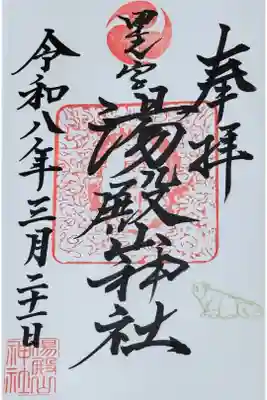 奉拝
里之宮
湯殿山神社
令和八年三月二十一日
湯殿山
神社